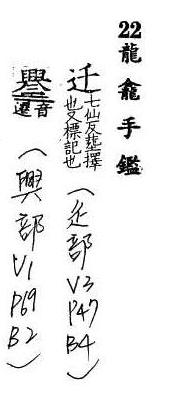 22龍龕手鑑
迁七仙反葬擇也又標記也(辵部V3P47B4)
音遷(興部V1P69B2)